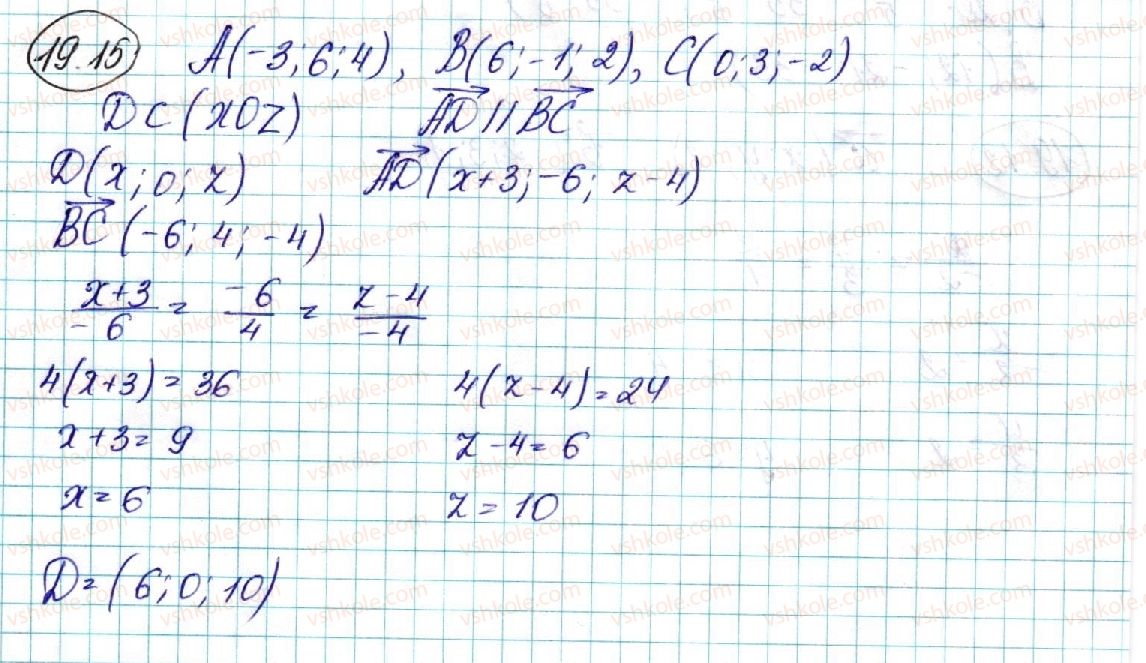 19.15 A(-3;6;4), B(6;-1;2), C(0;3;-2)
D ⊂ (XOZ) AD || BC
D(x;0;z) AD(x+3;-6;z-4)
BC(-6;4;-4)
x+3/-6 = -6/4 = z-4/-4
4(x+3)=36 4(z-4)=24
x+3=9 z-4=6
x=6 z=10
D=(6;0;10)
vshkole.com